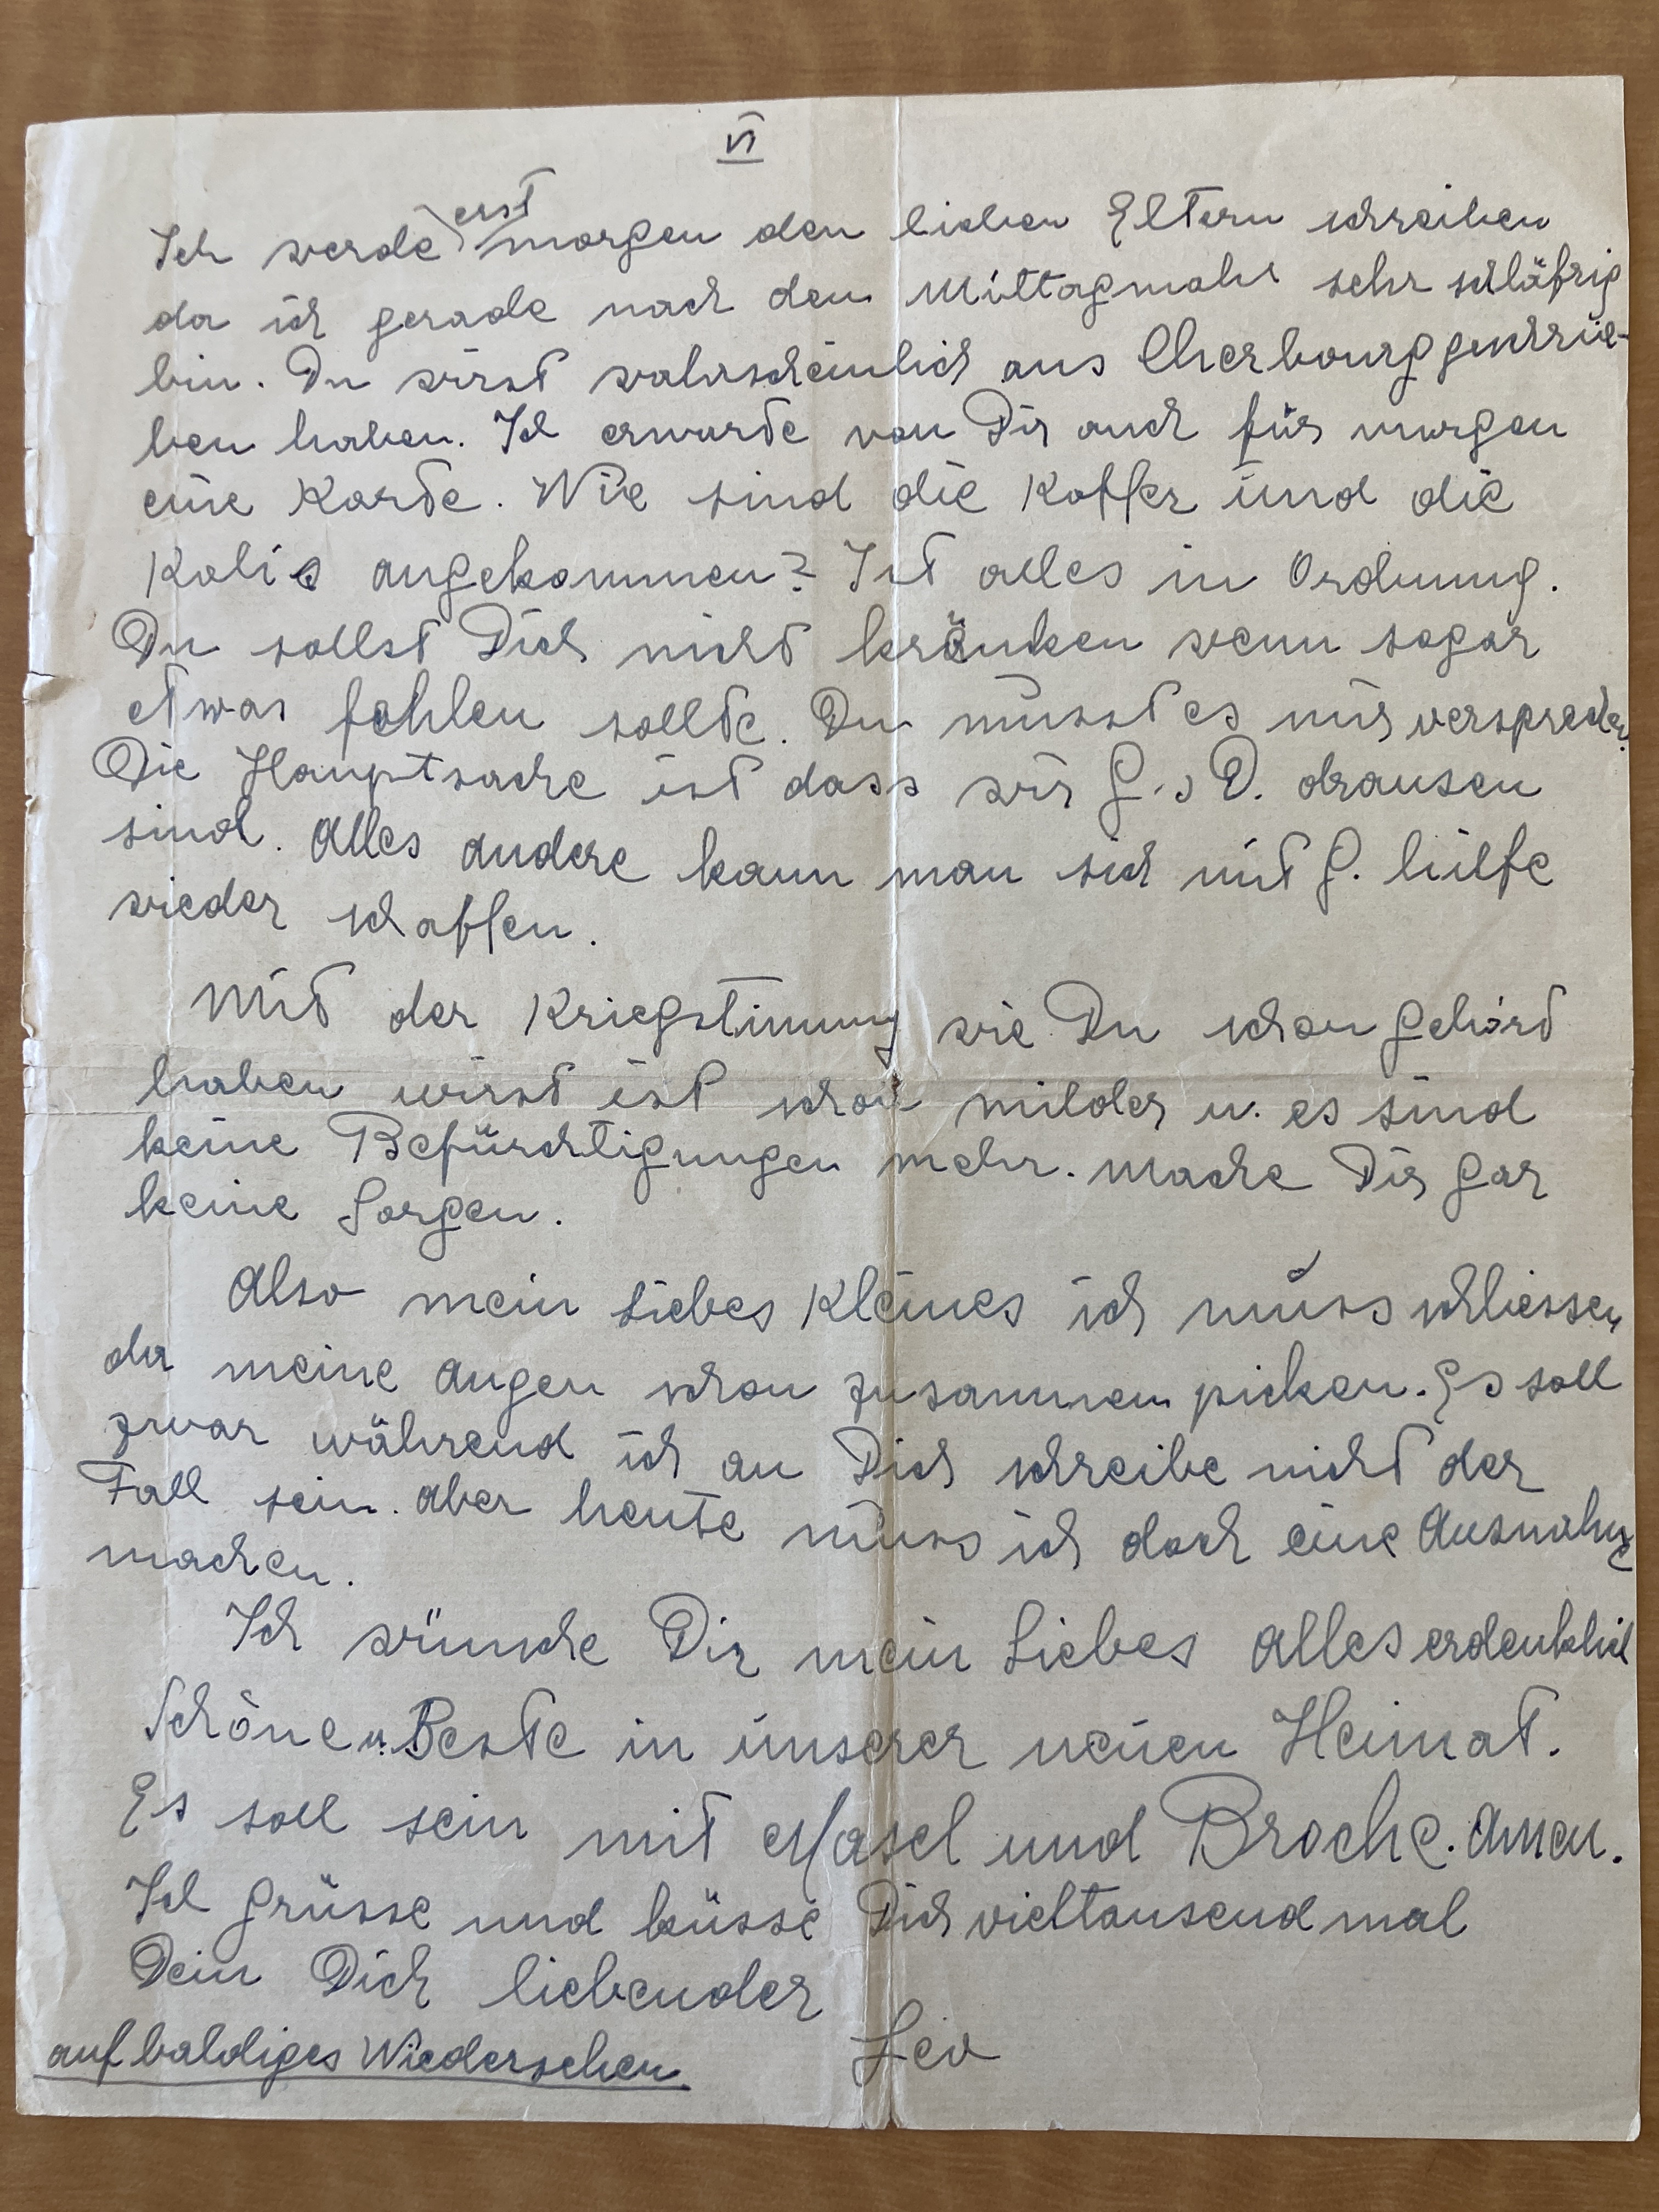 VI
Ich werde erst morgen den lieben Eltern schreiben
da ich gerade nach dem Mittagmahl sehr schläfrig
bin. Du wirst wahrscheinlich aus Cherbourg geschrie-
ben haben. Ich erwarte von Dir auch für morgen
eine Karte. Wie sind die Koffer und die
Kolis angekommen? Ist alles in Ordnung.
Du sollst Dich nicht kränken wenn sogar
etwas fehlen sollte. Du musst es mir versprechen.
Die Hauptsache ist dass wir G. s. D. drausen
sind. Alles andere kann man sich mit G. hilfe
wieder schaffen.
Mit der Kriegstimmung wie Du schon gehört
haben wirst ist schon milder u. es sind
keine Befürchtigungen mehr. Mache Dir gar
keine Sorgen.
Also mein Liebes Kleines ich muss schliessen
da meine Augen schon zusammen picken. Es soll
zwar während ich an Dich schreibe nicht der
Fall sein. Aber heute muss ich doch eine Ausnahme
machen.
Ich wünsche Dir mein Liebes alles erdenklich
Schöne u. Beste in unserer neuen Heimat.
Es soll sein mit Masel und Broche. Amen.
Ich grüsse und küsse Dich vieltausendmal
Dein Dich liebender
Leo
auf baldiges Wiedersehen